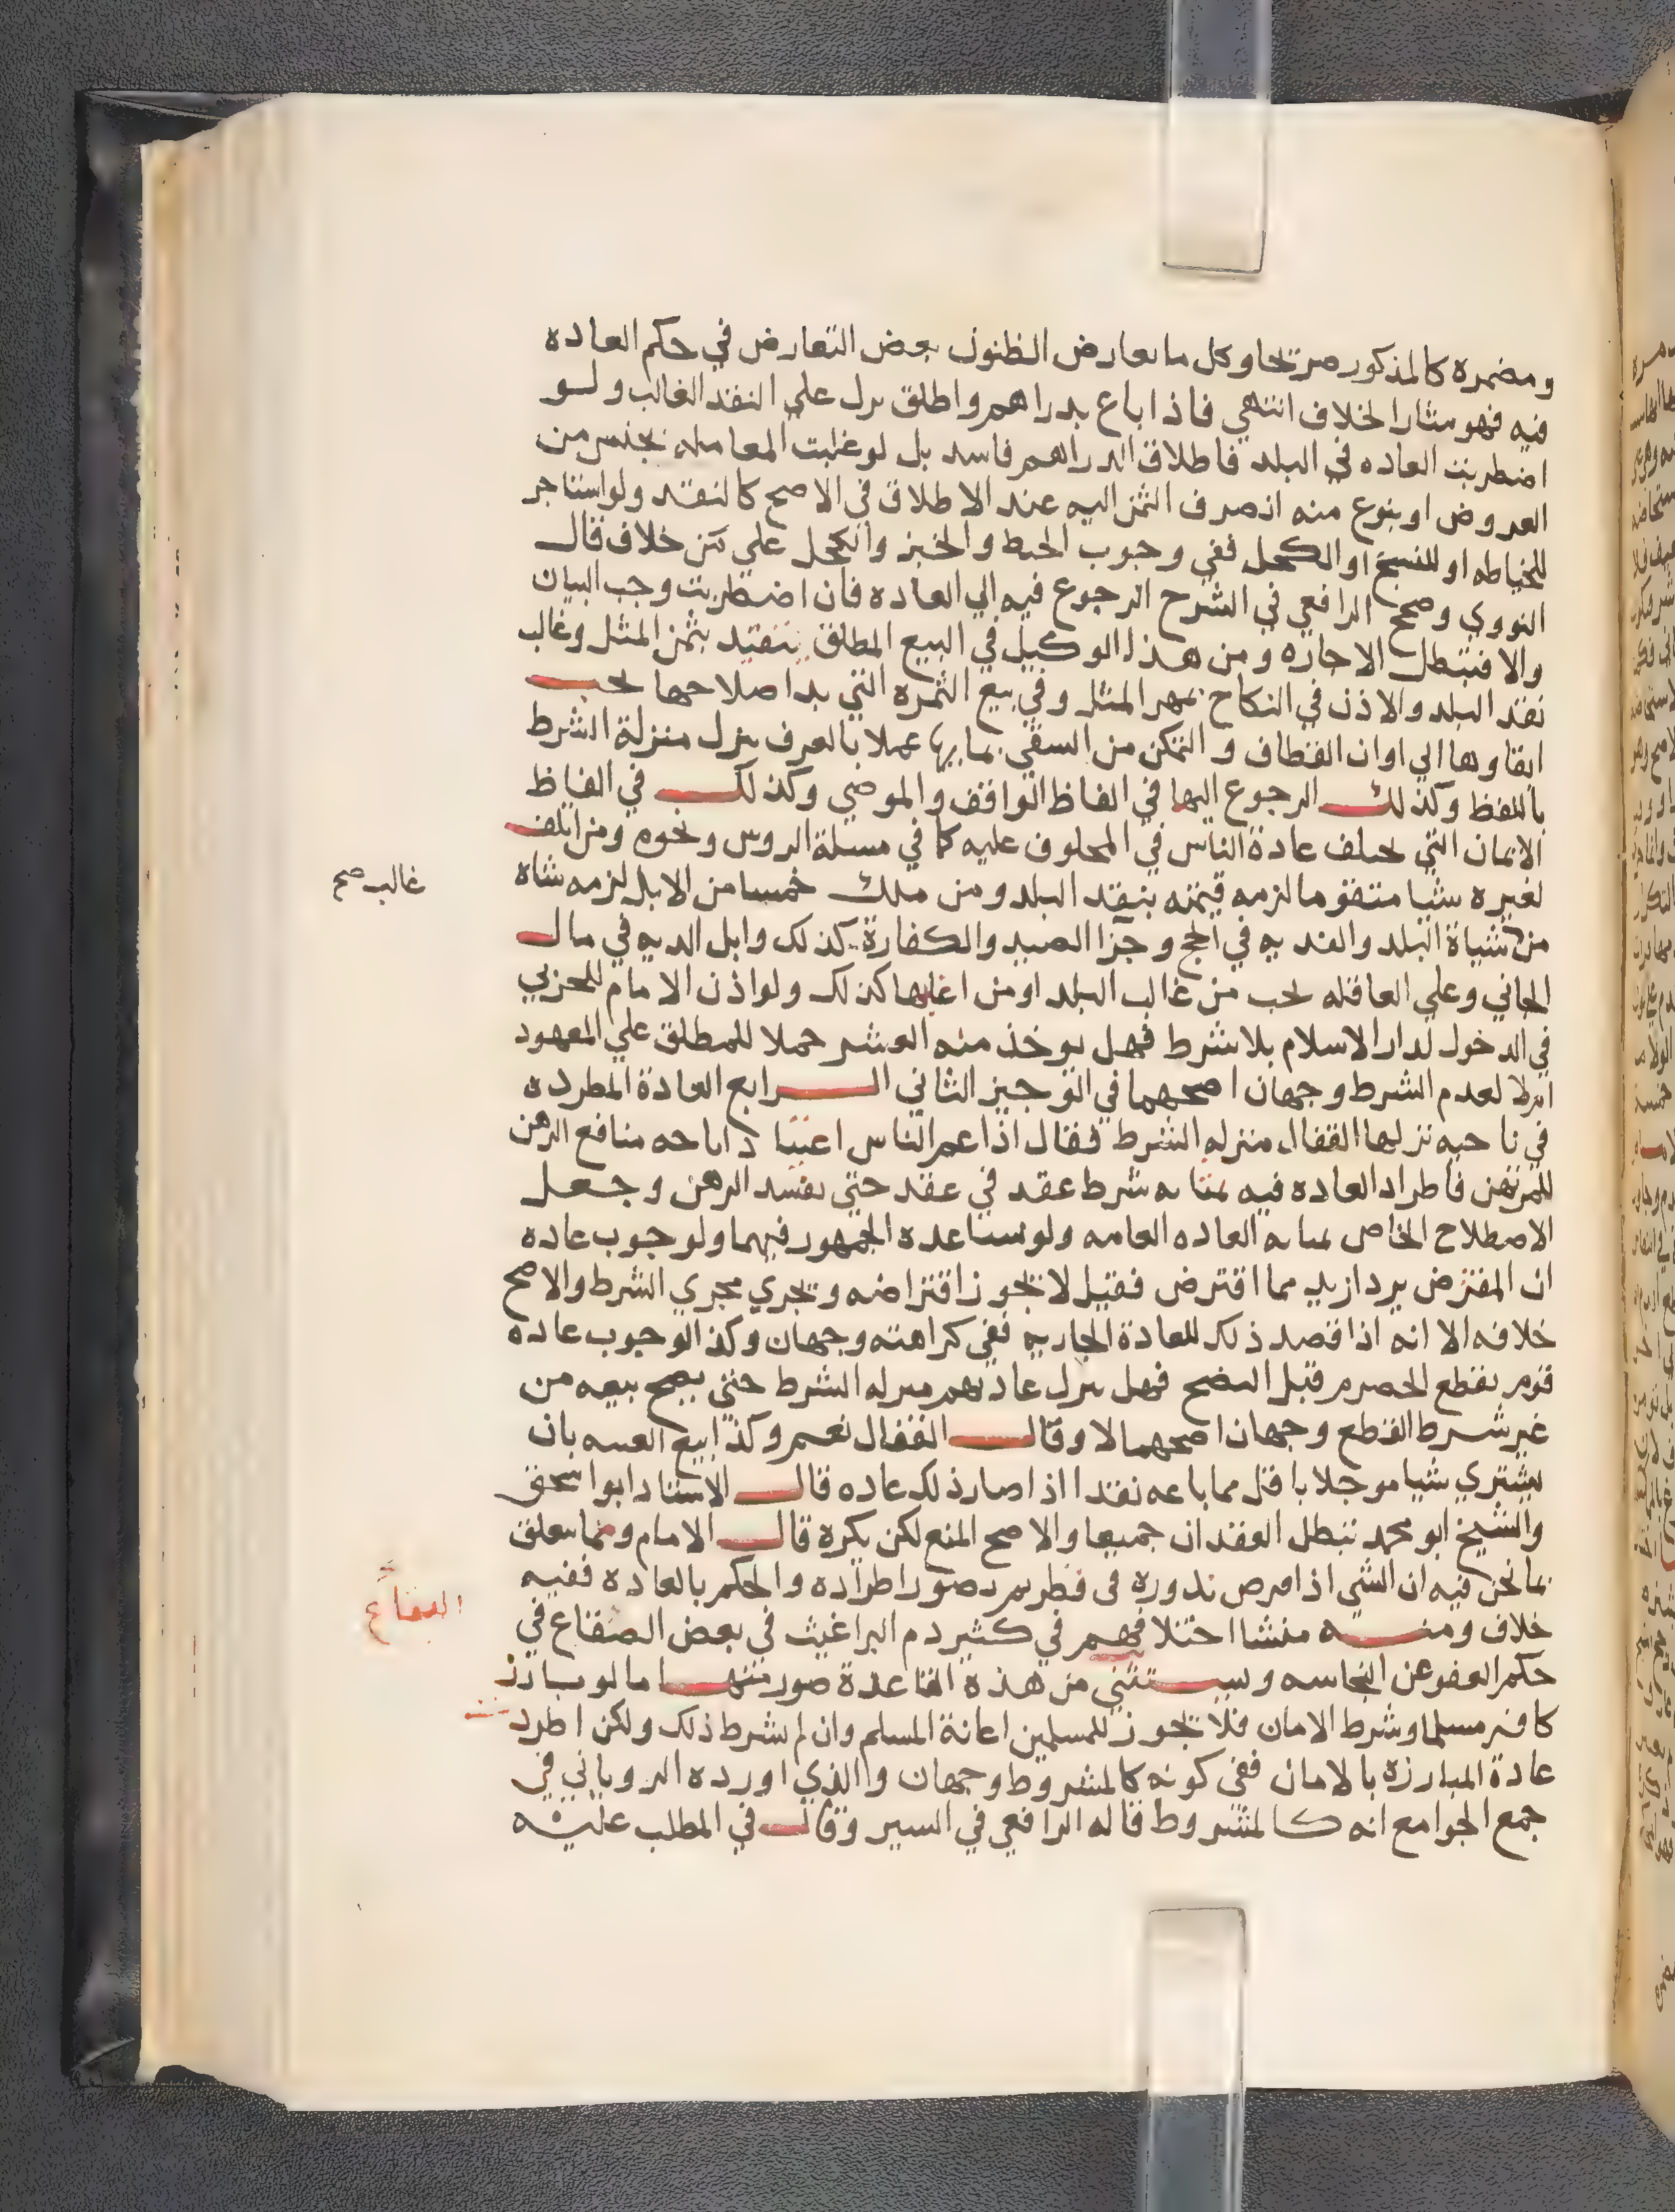 ومضمره كالمذكور صريحا وكل ما تعارض الظنون بعض التعارض في حكم العاده
فيه فهو مثار الخلاف انتهي فاذا باع بدراهم واطلق نزل علي النقد الغالب ولو
اضطربت العاده في البلد فاطلاق الدراهم فاسد بل لو غلبت المعامله بجنس من
العروض او بنوع منه انصرف الثمن اليه عند الاطلاق في الاصح كالنقد ولو استاجر
للخياطه او للنسخ او الكحل ففي وجوب الخيط والحبر والكحل علي من خلاف قال
النووي وصحح الرافعي في الشرح الرجوع فيه الي العاده فان اضطربت وجب البيان
والا فتبطل الاجاره ومن هذا الوكيل في البيع المطلق يتقيد بثمن المثل وغالب
نقد البلد والاذن في النكاح بمهر المثل وفي بيع الثمره التي بدا صلاحها يجب
ابقاوها الي اوان القطاف و التمكن من السقي بمايها عملا بالعرف ينزل منزلة الشرط
باللفظ وكذلك الرجوع اليها في الفاظ الواقف والموصي وكذلك في الفاظ
الايمان التي تختلف عادة الناس في المحلوف عليه كما في مسلة الروس ونحوه ومن اتلف
لغيره شيا متقوما لزمه قيمته بنقد البلد ومن ملك خمسا من الابل لزمه شاه
غالب صح
من شياة البلد والفديه في الحج وجزا الصيد والكفارة كذلك وابل الديه في مال
الجاني وعلي العاقله تجب من غالب البلد او من اغلبها كذلك ولو اذن الامام للحربي
في الدخول لدار الاسلام بلا شرط فهل يوخذ منه العشر حملا للمطلق علي المعهود
اولا لعدم الشرط وجهان اصحهما في الوجيز الثاني الرابع العادة المطرده
في ناحيه نزلها القفال منزله الشرط فقال اذا عم الناس اعتياد اباحه منافع الرهن
للمرتهن فاطراد العاده فيه بمثابه شرط عقد في عقد حتي يفسد الرهن وجعل
الاصطلاح الخاص بمثابه العاده العامه ولو ساعده الجمهور فيهما ولو جوب عاده
ان المقترض يرد ازيد مما اقترض فقيل لا يجوز اقتراضه ويجري مجري الشرط والاصح
خلافه الا انه اذا قصد ذلك للعادة الجاريه ففي كراهته وجهان وكذا لو جوب عاده
قوم بقطع الحصرم قبل النضج فهل ينزل عادتهم منزله الشرط حتي يصح بيعه من
غير شرط القطع وجهان اصحهما لا وقال القفال نعم وكذا بيع العينه بان
يشتري شيا موجلا باقل مما باعه نقدا اذا صار ذلك عاده قال الاستاد ابو اسحق
والشيخ ابو محمد تبطل العقدان جميعا والاصح المنع لكن يكره قال الامام ومما يتعلق
بما نحن فيه ان الشي اذا فرض ندوره في قطر يتصور اطراده والحكم بالعاده ففيه
البقاع
خلاف ومنه منشا اختلافهم في كثير دم البراغيث في بعض الصقاع في
حكم العفو عن النجاسه ويستثني من هذه القاعدة صور منها ما لو بارز
كافر مسلما وشرط الامان فلا يجوز للمسلمين اعانة المسلم وان لم يشرط ذلك ولكن اطرد
عادة المبارزه بالامان ففي كونه كالمشروط وجهان والذي اورده الروياني في
جمع الجوامع انه كالمشروط قاله الرافعي في السير وقال في المطلب عليه